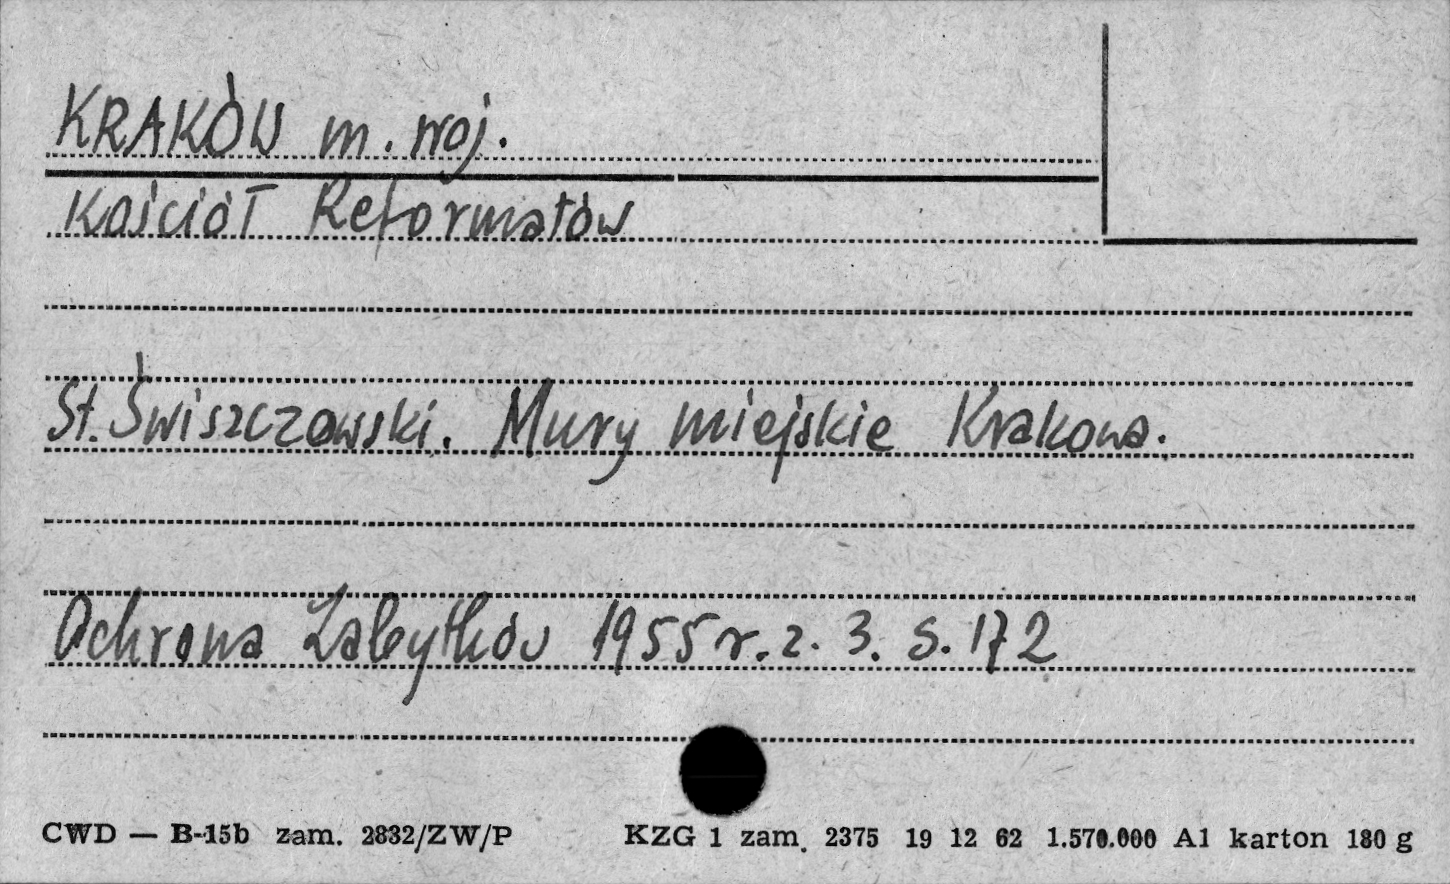 KRAKÓW m. woj.
Kościół Reformatów
St. Świszczowski. Mury miejskie Krakowa.
Ochrona Zabytków 1955 r. z. 3. s. 172
CWD — B-15b zam. 2832/ZW/P KZG 1 zam. 2375 19 12 62 1.570.000 A1 karton 180 g